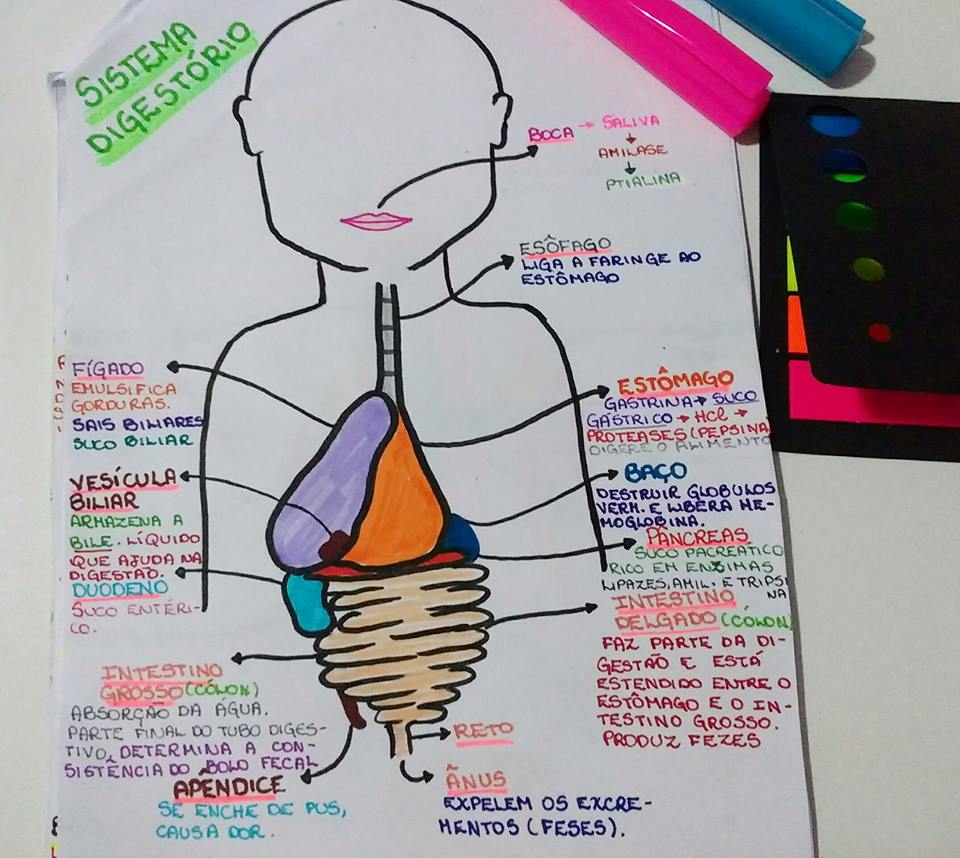 SISTEMA
DIGESTÓRIO
BOCA → SALIVA
AMILASE
PTIALINA
ESÔFAGO
LIGA A FARINGE AO
ESTÔMAGO
FÍGADO
EMULSIFICA
GORDURAS.
SAIS BILIARES
SUCO BILIAR
VESÍCULA
BILIAR
ARMAZENA A
BILE. LÍQUIDO
QUE AJUDA NA
DIGESTÃO.
DUODENO
SUCO ENTÉRI-
CO.
INTESTINO
GROSSO (CÓLON)
ABSORÇÃO DA ÁGUA.
PARTE FINAL DO TUBO DIGES-
TIVO, DETERMINA A CON-
SISTÊNCIA DO BOLO FECAL
APÊNDICE
SE ENCHE DE PUS,
CAUSA DOR.
ESTÔMAGO
GASTRINA → SUCO
GÁSTRICO → HCl →
PROTEASES (PEPSINA
DIGERE O ALIMENTO
BAÇO
DESTRUIR GLOBULOS
VERM. E LIBERA HE-
MOGLOBINA.
PÂNCREAS
SUCO PACREÁTICO
RICO EM ENZIMAS
LIPAZES, AMIL. E TRIPSI
NA
INTESTINO
DELGADO (CÓLON)
FAZ PARTE DA DI-
GESTÃO E ESTÁ
ESTENDIDO ENTRE O
ESTÔMAGO E O IN-
TESTINO GROSSO.
PRODUZ FEZES
RETO
ÂNUS
EXPELEM OS EXCRE-
MENTOS (FESES).